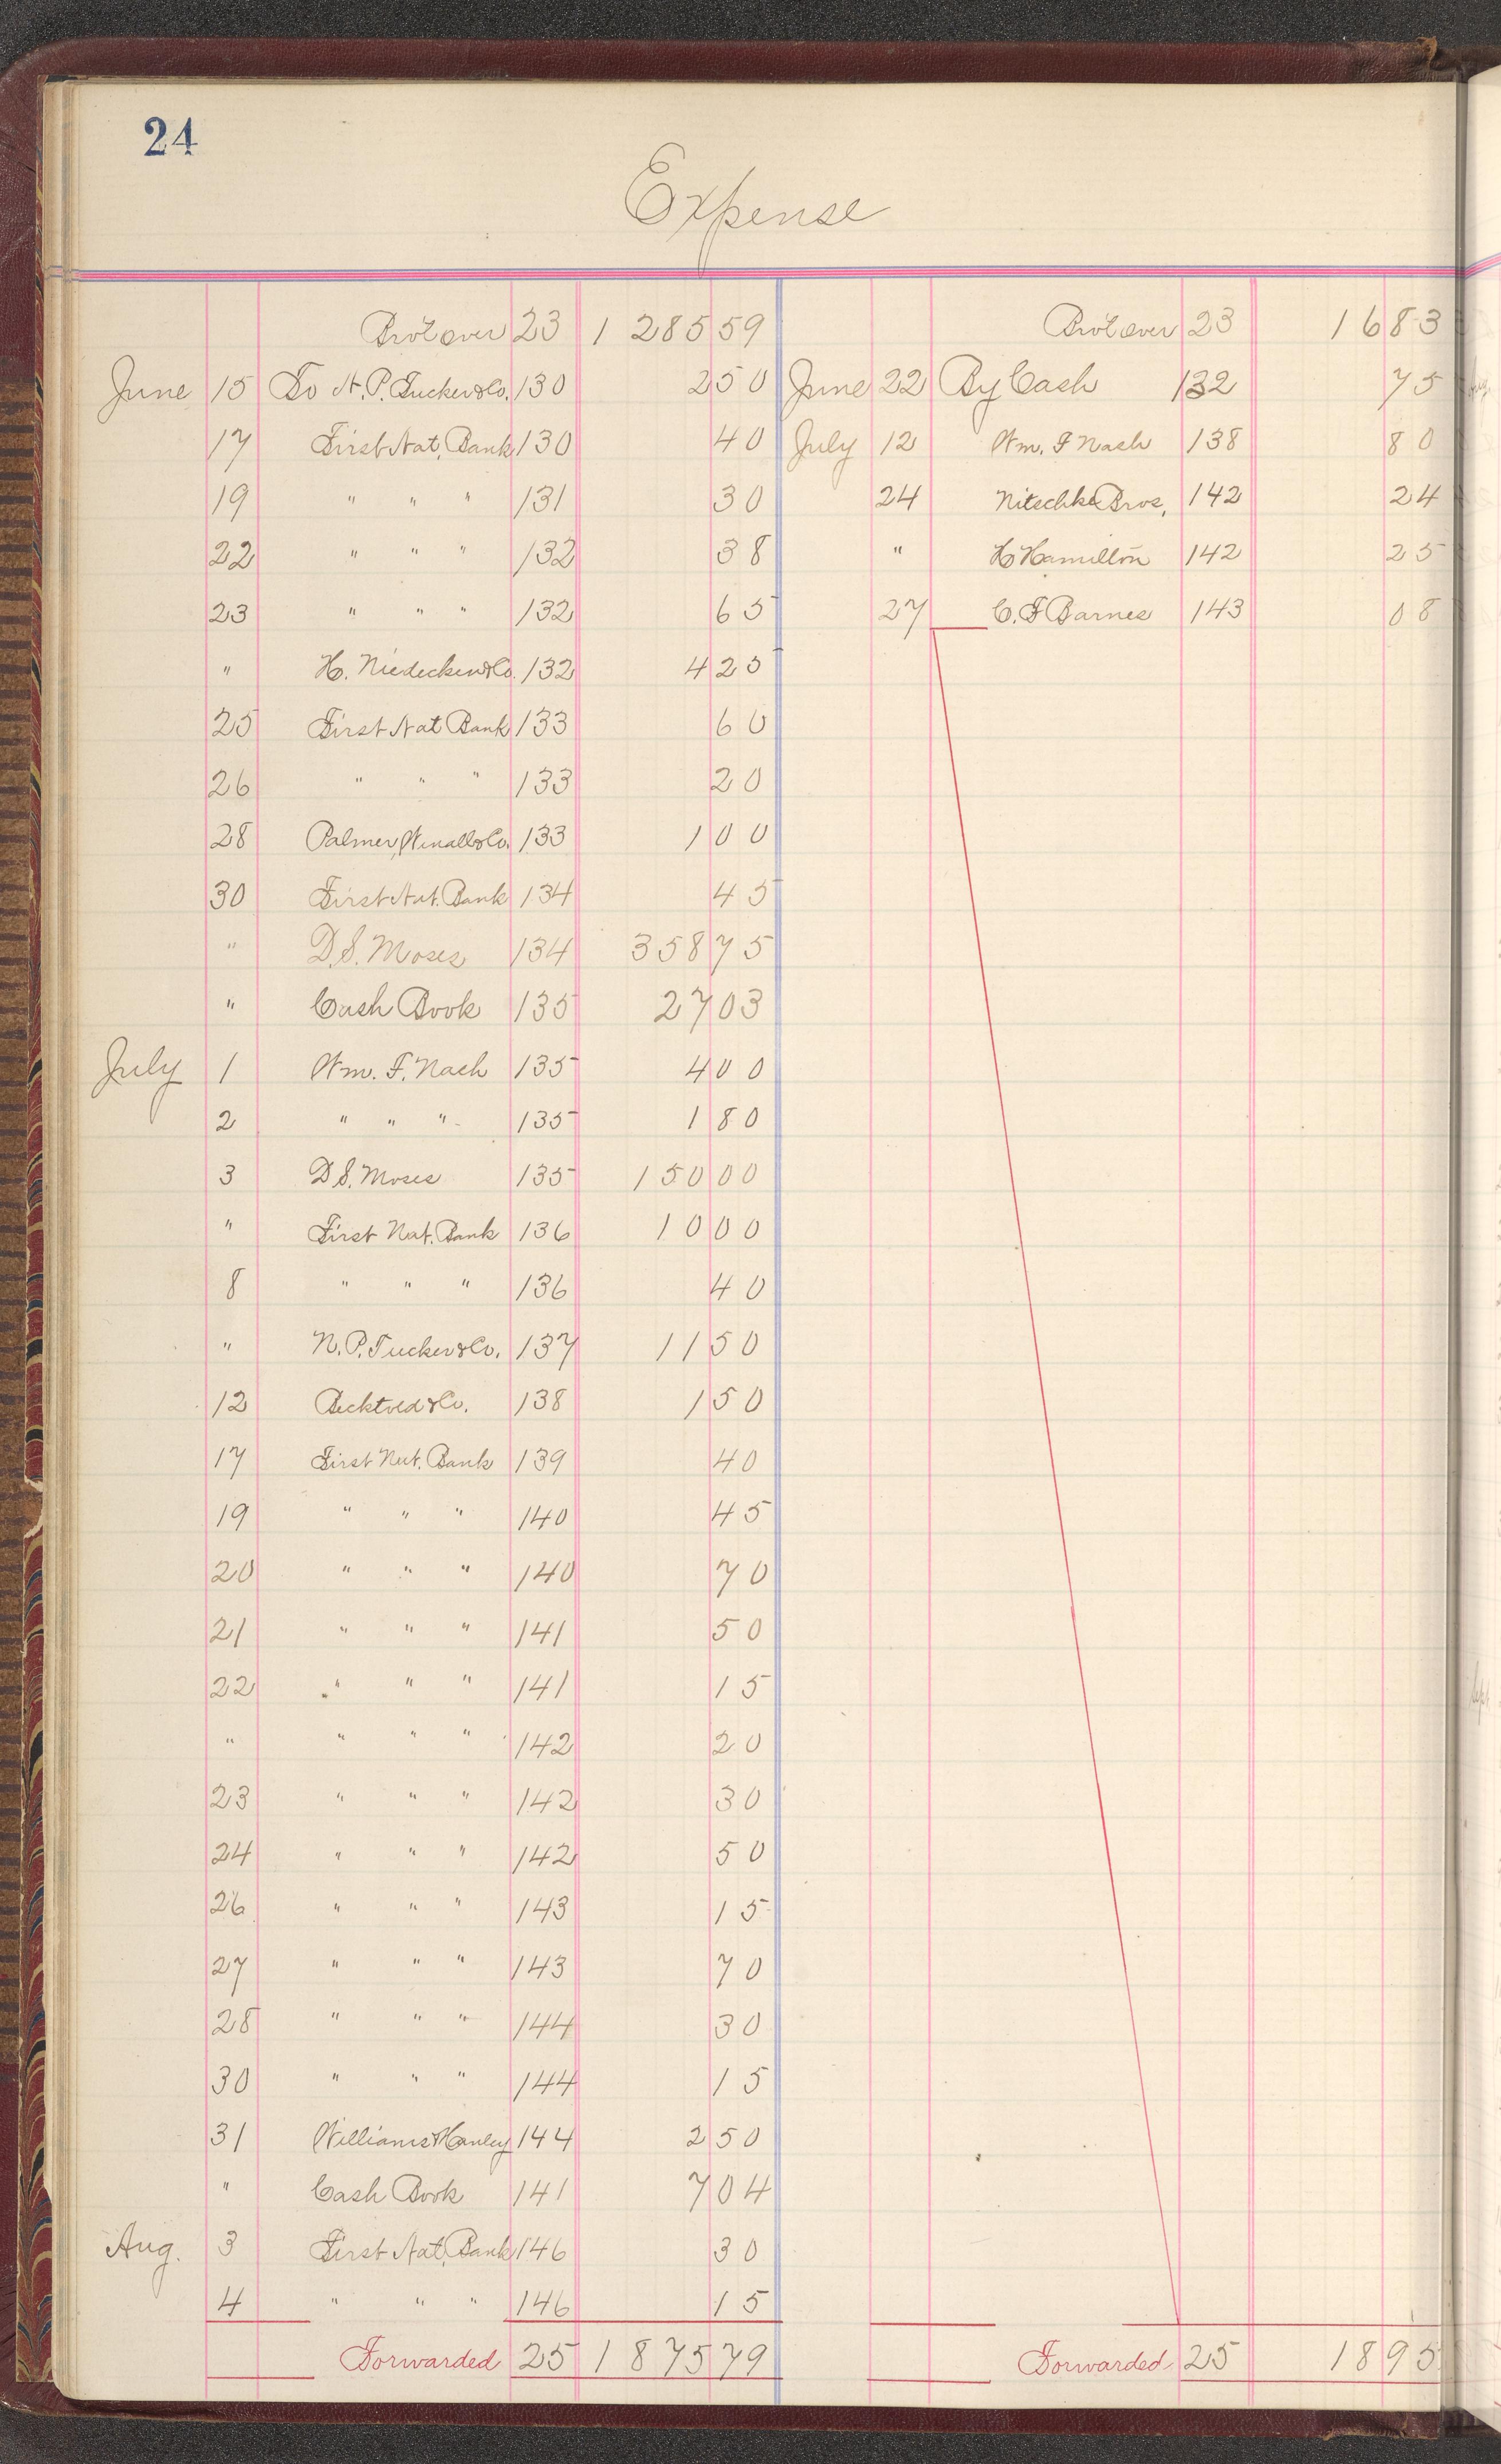 24
Expense
Bro't over 23 1 285 59 Bro't over 23 16 83
June 15 To N.P. Tucker & Co. 130 2 50 June 22 By Cash 132 75
17 First Nat. Bank 130 40 July 12 Wm. F Nash 138 80
19 " " " 131 30 24 Nitschke Bros, 142 24
22 " " " 132 38 " H Hamilton 142 25
23 " " " 132 65 27 C. F Barnes 143 08
" H. Niedecken & Co. 132 4 25
25 First Nat Bank 133 60
26 " " " 133 20
28 Palmer, Winall & Co. 133 1 00
30 First Nat. Bank 134 45
" D.S. Moses 134 358 75
" Cash Book 135 27 03
July 1 Wm. F. Nash 135 4 00
2 " " " 135 1 80
3 D S. Moses 135 150 00
" First Nat. Bank 136 10 00
8 " " " 136 40
" N.P. Tucker & Co. 137 11 50
12 Becktold & Co. 138 1 50
17 First Nat. Bank 139 40
19 " " " 140 45
20 " " " 140 70
21 " " " 141 50
22 " " " 141 15
" " " " 142 20
23 " " " 142 30
24 " " " 142 50
26 " " " 143 15
27 " " " 143 70
28 " " " 144 30
30 " " " 144 15
31 Williams & Hanley 144 2 50
" Cash Book 141 7 04
Aug. 3 First Nat. Bank 146 30
4 " " " 146 15
Forwarded 25 1 875 79 Forwarded 25 18 95